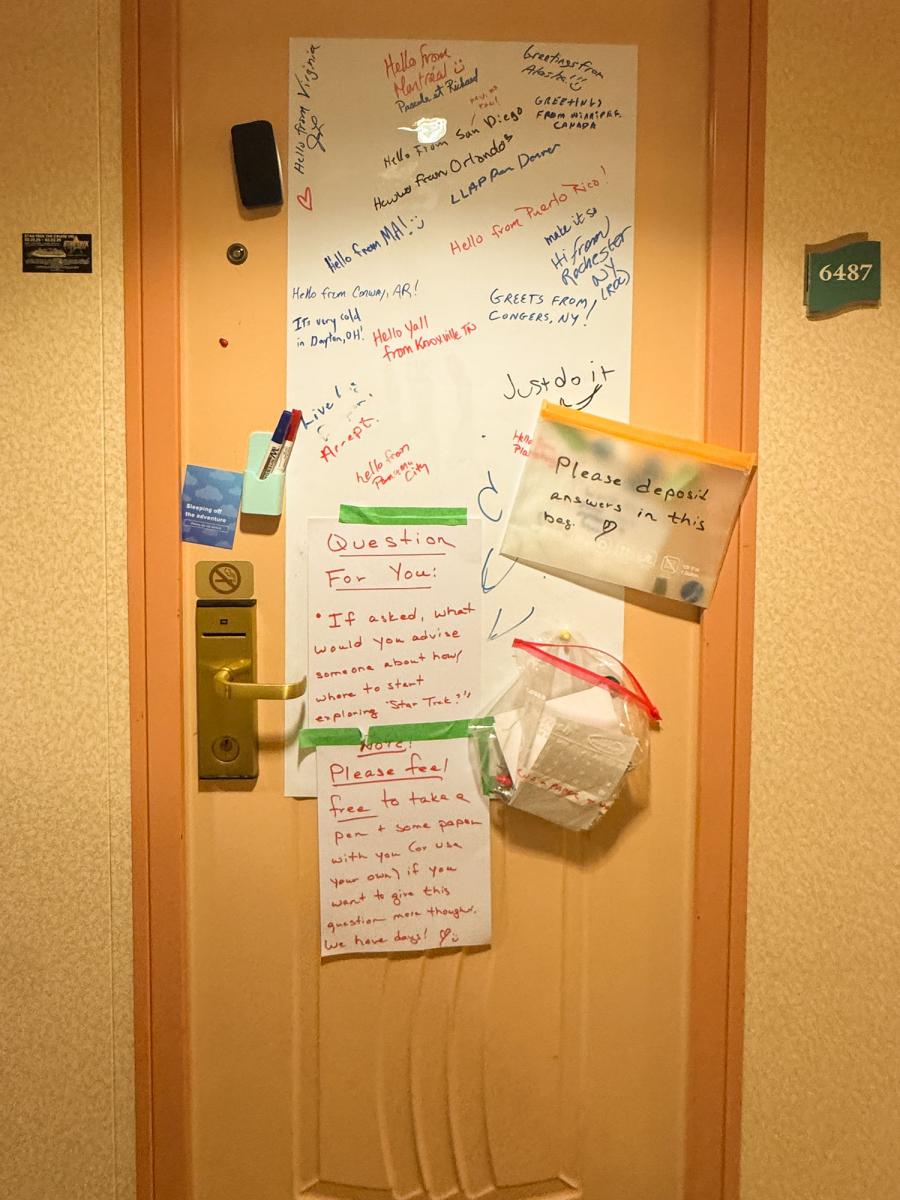 Hello from Virginia
Hello from
Montréal
Pascale et Richard
Greetings from
Alaska!
GREETINGS
FROM WINNIPEG,
CANADA
Hello From San Diego
from Orlando
LLAP
Hello from MA!
Hello from Puerto Rico!
make it so
Hi from
Rochester
NY
(ROC)
Hello from Conway, AR!
It's very cold
in Dayton, OH!
Hello Yall
from Knoxville TN
GREETS FROM
CONGERS, NY!
Just do it
Live!
hello from
Panama
City
6487
Sleeping off
the adventure
Please deposit
answers in this
bag.
Question
For You:
• If asked, what
would you advise
someone about how/
where to start
exploring "Star Trek?"
Note!
Please feel
free to take a
pen + some paper
with you (or use
your own) if you
want to give this
question more thought.
We have days!